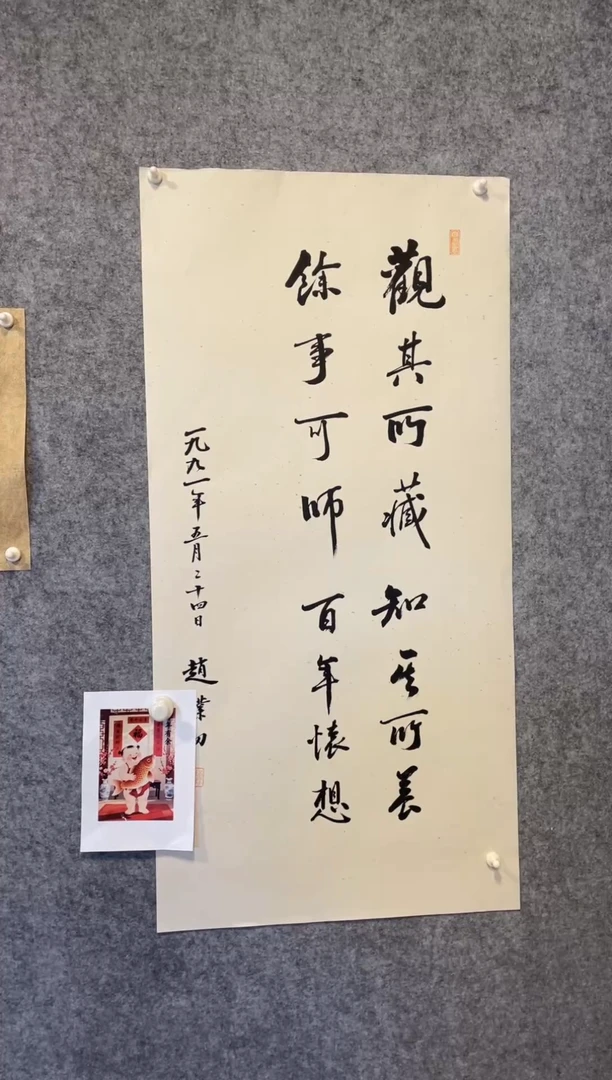 觀其所藏知其所養
餘事可師百年懷想
一九九一年五月二十四日 趙
福